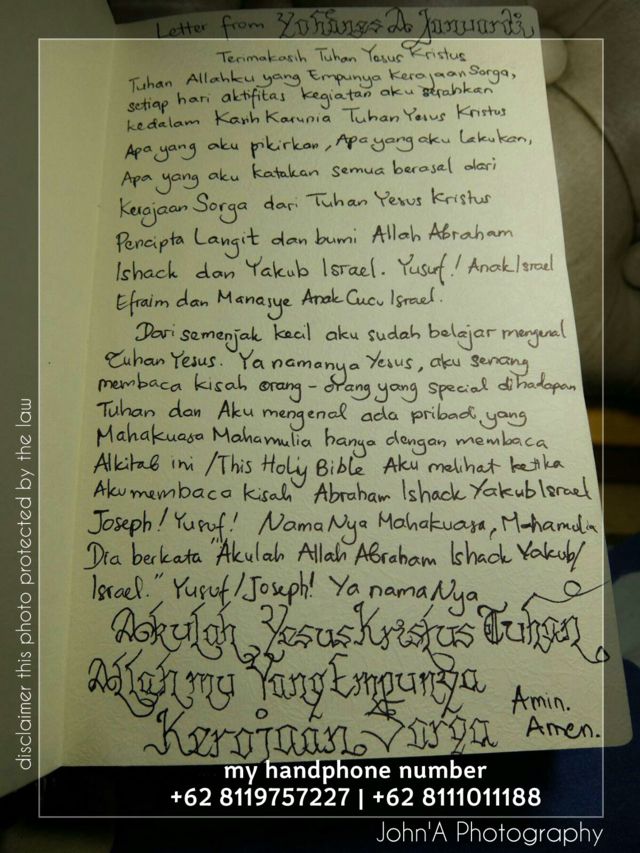 Letter from Yohanes A Januardi
Terimakasih Tuhan Yesus Kristus
Tuhan Allahku yang Empunya Kerajaan Sorga,
setiap hari aktifitas kegiatan aku serahkan
kedalam Kasih Karunia Tuhan Yesus Kristus
Apa yang aku pikirkan, Apa yang aku lakukan,
Apa yang aku katakan semua berasal dari
Kerajaan Sorga dari Tuhan Yesus Kristus
Pencipta Langit dan bumi Allah Abraham
Ishack dan Yakub Israel. Yusuf! Anak Israel
Efraim dan Manasye Anak Cucu Israel.
Dari semenjak kecil aku sudah belajar mengenal
Tuhan Yesus. Ya namanya Yesus, aku senang
membaca kisah orang-orang yang special dihadapan
Tuhan dan Aku mengenal ada pribadi yang
Mahakuasa Mahamulia hanya dengan membaca
Alkitab ini /This Holy Bible Aku melihat ketika
Aku membaca kisah Abraham Ishack Yakub Israel
Joseph! Yusuf! NamaNya Mahakuasa, Mahamulia
Dia berkata "Akulah Allah Abraham Ishack Yakub/
Israel." Yusuf/Joseph! Ya namaNya
Akulah Yesus Kristus Tuhan
Allah mu Yang Empunya
Kerajaan Sorga
Amin.
Amen.
disclaimer this photo protected by the law
my handphone number
+62 8119757227 | +62 8111011188
John'A Photography